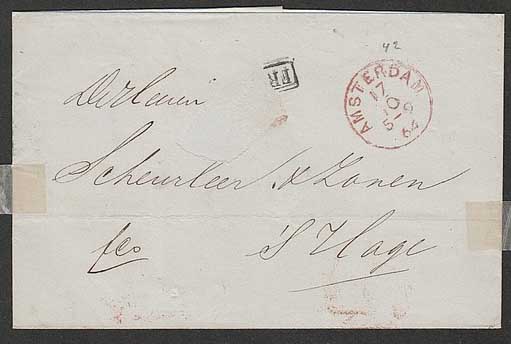 42
FR
AMSTERDAM
17
De Heeren
Scheurleer & Zonen
fco
's Hage